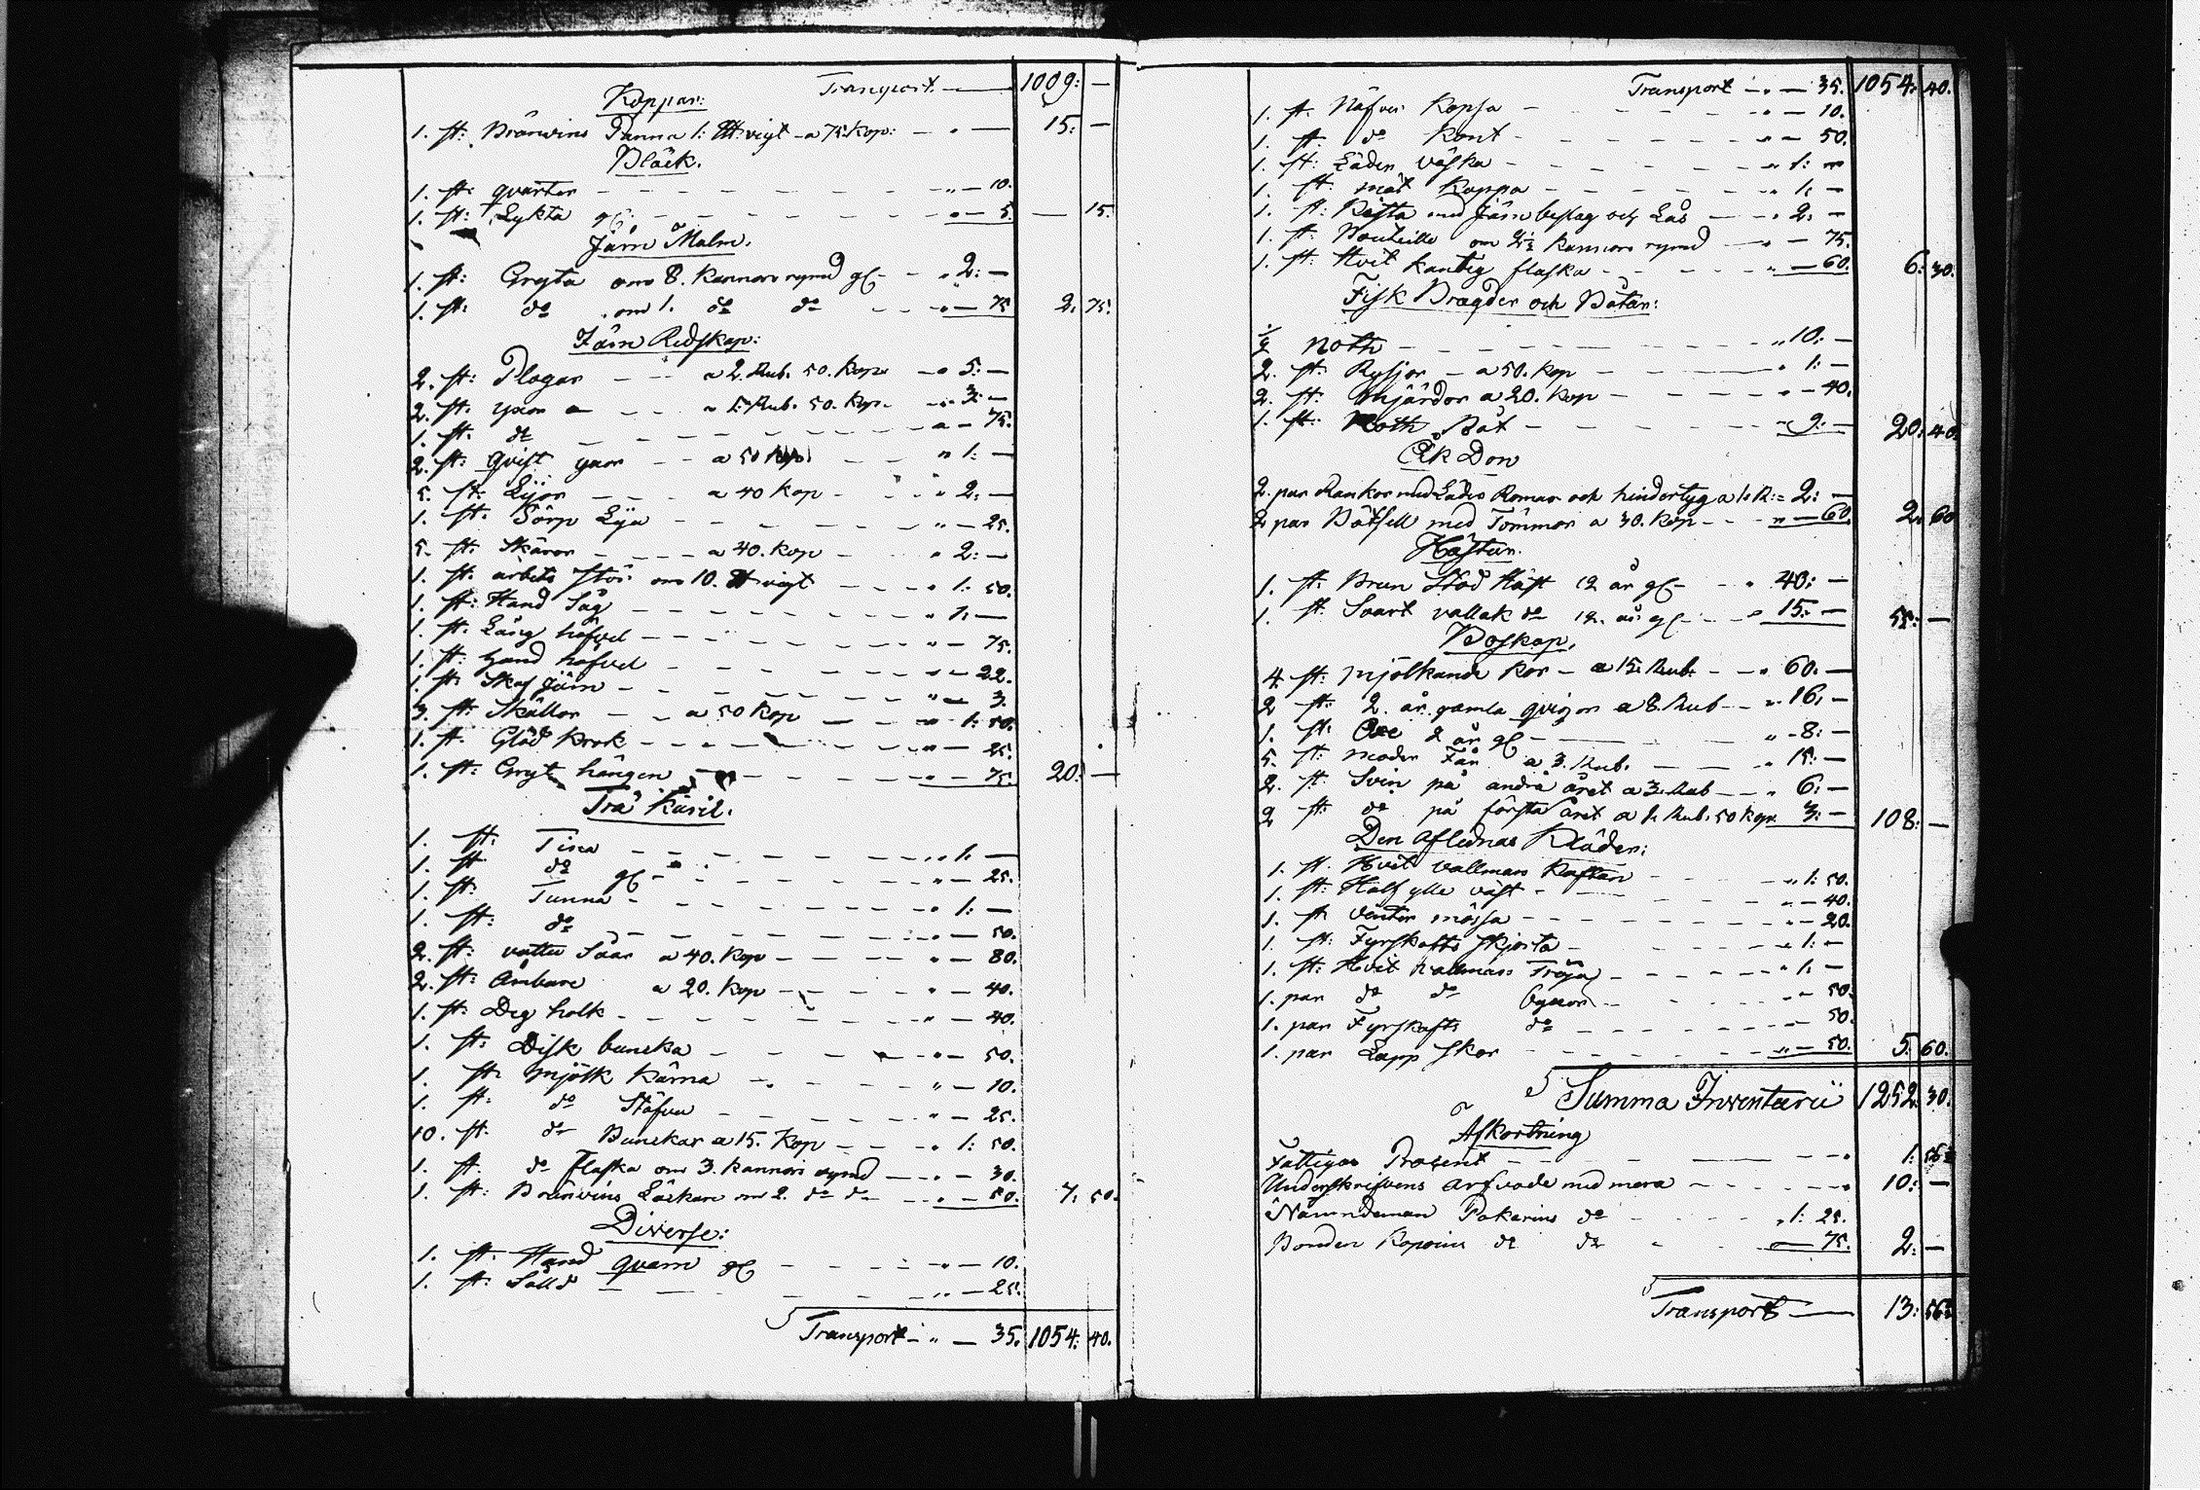 Transport. — 1009: —
Koppar:
1. st: Bränvins Panna 1: vigt a 75 Kop: — 15: —
Bläck.
1. st: qvarter — 10.
1. st: Lykta gl: — 5. — 15.
Järn Malm.
1. st: Gryta om 8. kannors rymd gl — 2: —
1. st: do om 1. do do — 75 2. 75.
Järn Redskap:
2. st: Plogar — a 2. Rub. 50. Kop. 5: —
2. st: yxor — a 1: Rub. 50. Kop. 3: —
1. st. do — 75.
2. st: qvist yxor — a 50 Kop. 1: —
5. st: Lijor — a 40 Kop — 2: —
1. st: Sörp Lija — 25.
5. st. Skäror — a 40. Kop — 2: —
1. st. arbets om 10. vigt — 1: 50.
1. st: Hand Såg — 1: —
1. st. Lång höfvel — 75.
1. st: Hand höfvel — 22.
1. st: Skaf Järn — 3.
3. st: Skällor — a 50 Kop — 1: 50.
1. st. Glöd Krok — 25.
1. st: Gryt hängen — 75. 20: —
Trä Käril.
1. st: Tina — 1. —
1. st do gl — 25.
1. st: Tunna — 1: —
1. st: do — 50.
2. st: vattu Såar a 40. Kop — 80.
2. st: Ämbare a 20. Kop — 40.
1. st: Deg holk — 40.
1. st: Disk bunska — 50.
1. st: Mjölk Kärna — 10.
1. st: do Stäfva — 25.
10. st. do Bunskar a 15. Kop — 1: 50.
1. st. do Flaska om 3. Kannors rymd — 30.
1. st: Bränvins om 2. do do — 50. 7. 50.
Diverse:
1. st. Hand qvarn gl — 10.
1. st: Såll — 25.
Transport — 35. 1054: 40.
Transport — 35. 1054: 40.
1. st. Näfver Kopsa — 10.
1. st. do Kont — 50.
1. st: Läder väska — 1: —
1. st: mat Koppa — 1: —
1. st: Kista med Järn beslag och Lås — 2: —
1. st. Bouteille om kannors rymd — 75.
1. st: Hvit kantig flaska — 60. 6: 30.
Fisk Bragder och Båtar:
1/2 Noth — 10: —
2. st: Rysjor — a 50. Kop — 1: —
2. st: Mjärdor a 20. Kop — 40.
1. st: Noth Båt — 9: — 20: 40
Åk Don
2. par Rankor med Läder Romar och hindertyg a 1: R: 2: —
2 par Bötsell med Tömmar a 30. Kop — 60 2. 60
Hästar.
1. st: Brun Stod Häst 12 år gl — 40: —
1. st. Svart vallak do 12. år gl — 15: — 55: —
Boskap.
4. st: Mjölkande Kor — a 15: Rub. — 60. —
2 st: 2. år gamla qvigor a 8. Rub — 16: —
1. st: Oxe 2 år gl — 8: —
5. st: Moder Får a 3. Rub. — 15: —
2. st. Svin på andra året a 3. Rub — 6: —
2 st: do på första året a 1: Rub. 50 Kop. 3: — 108: —
Den Aflednas Kläder:
1. st. Hvit vallmars Kaftan — 1: 50.
1. st: Half ylle väst — 40.
1. st. vinter mössa — 20.
1. st: Fyrskafts skjorta — 1: —
1. st: Hvit vallmars Tröja — 1. —
1. par do do byxor — 50.
1. par Fyrskafts do — 50.
1. par Lapp skor — 50. 5. 60.
Summa Inventarii 1252. 30.
Afkortning
Fattigas Procent — 1: 56
Underskrifvens arfvode med mera — 10: —
Nämndeman do — 1: 25.
Bonden do do — 75. 2: —
Transport — 13: 56